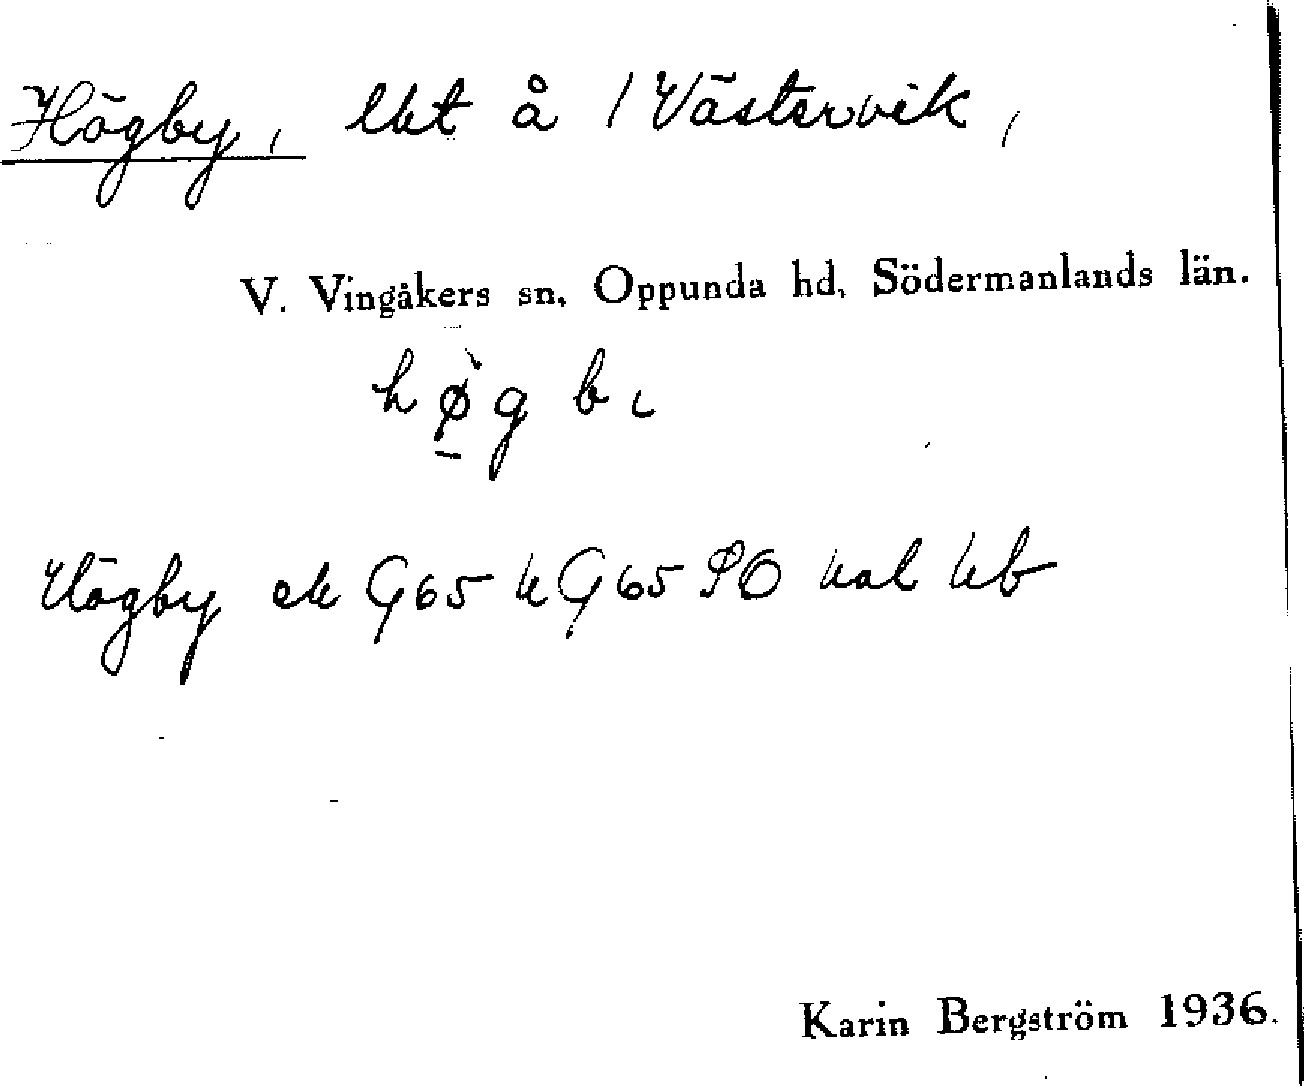 Högby, lht å / Västervik,
V. Vingåkers sn, Oppunda hd, Södermanlands län.
hø̀g bɩ
Högby ek G65 k G65 SO kal kb
Karin Bergström 1936.